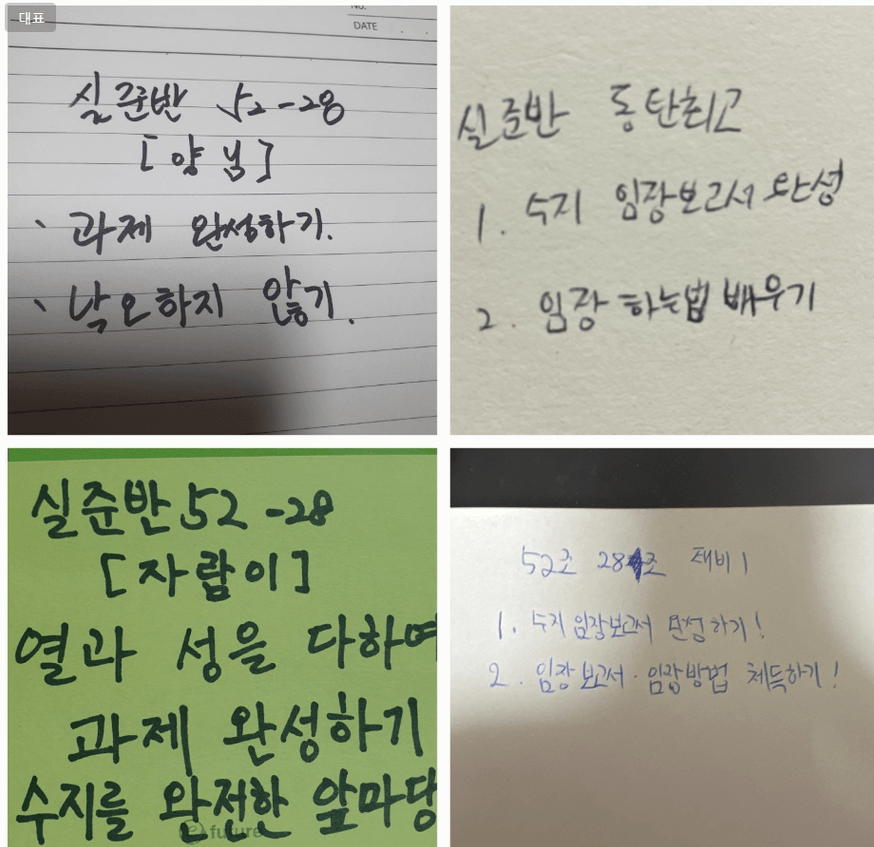 대표
NO.
DATE
실준반 52-28
[양님]
、 과제 완성하기.
、 낙오하지 않기.
실준반 동탄최고
1. 수지 임장보고서 완성
2. 임장 하는법 배우기
실준반 52-28
[자람이]
열과 성을 다하여
과제 완성하기
수지를 완전한 앞마당
future
52조 28조
1. 수지 임장보고서 완성하기!
2. 임장보고서·임장방법 체득하기!